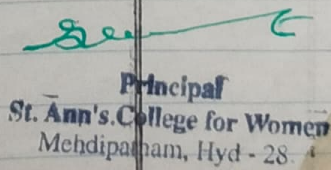 Principal
St. Ann's.College for Women
Mehdipatnam, Hyd - 28.